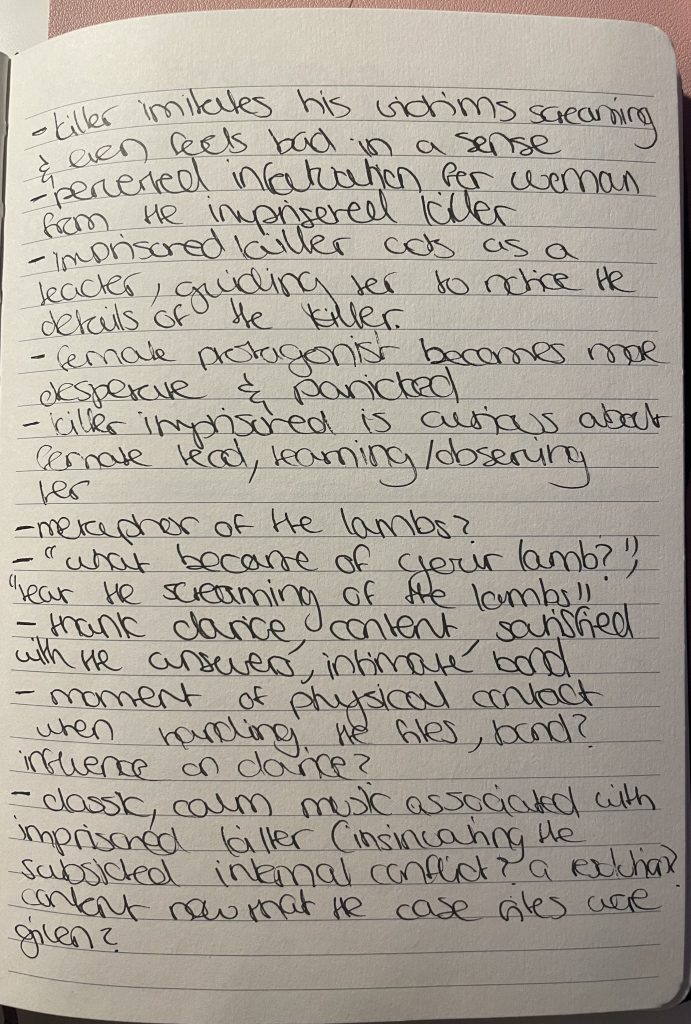 - killer imitates his victims screaming
& even feels bad in a sense
- perverted infatuation for woman
from the imprisoned killer
- imprisoned killer acts as a
teacher, guiding her to notice the
details of the killer.
- female protagonist becomes more
desperate & panicked
- killer imprisoned is curious about
female lead, learning/observing
her
- metaphor of the lambs?
- "what became of your lamb?",
"hear the screaming of the lambs"
- thank clarice, content, satisfied
with the answers, 'intimate' bond
- moment of physical contact
when handling the files, bond?
influence on clarice?
- classic, calm music associated with
imprisoned killer (insinuating the
subsided internal conflict? a
content now that the case files were
given?